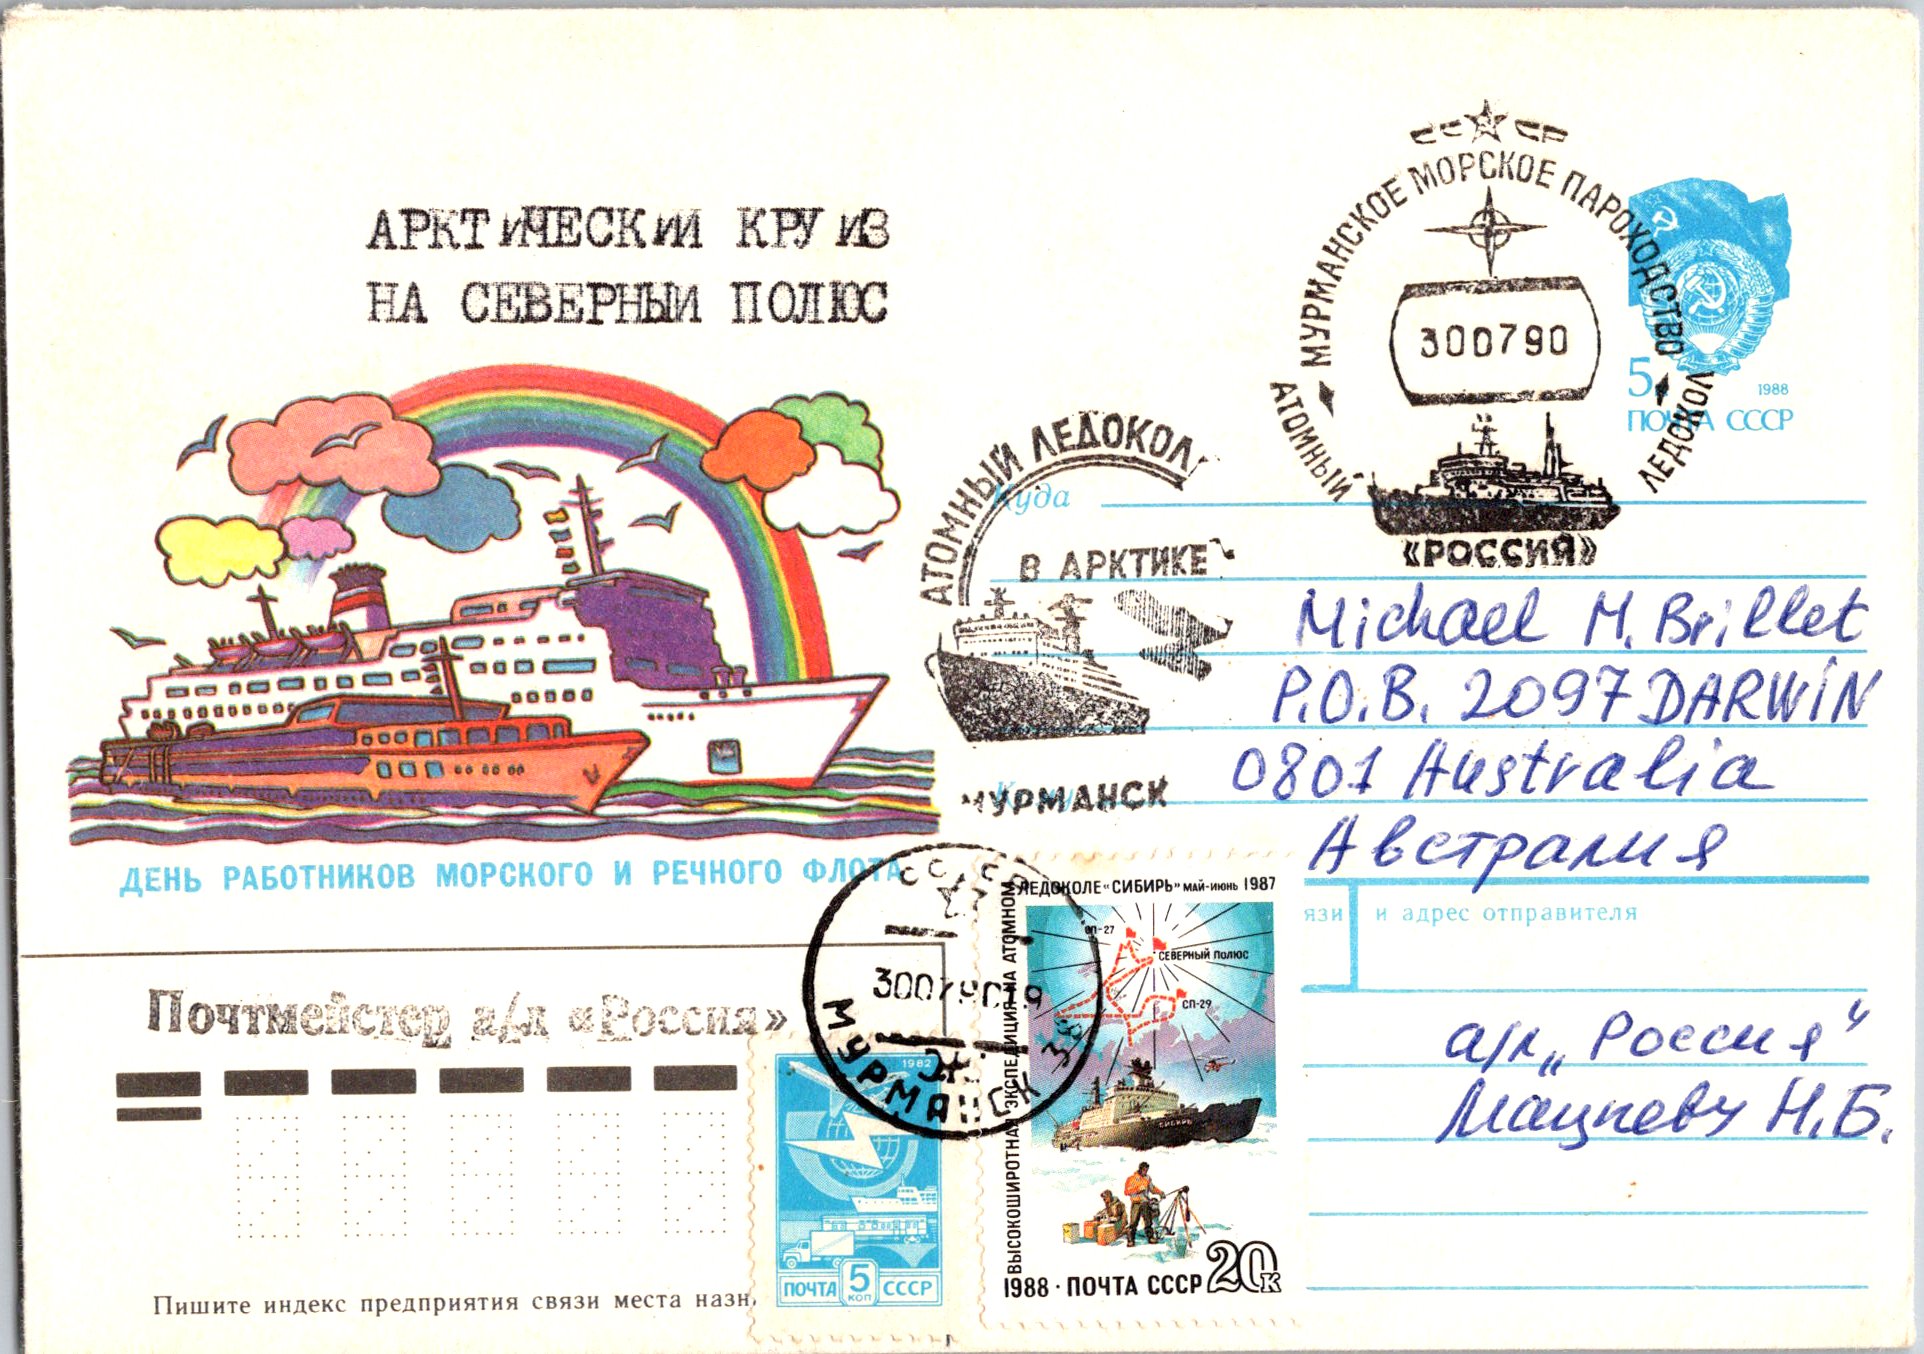 АРКТИЧЕСКИЙ КРУИЗ
НА СЕВЕРНЫЙ ПОЛЮС
СССР
МУРМАНСКОЕ МОРСКОЕ ПАРОХОДСТВО
300790
АТОМНЫЙ ЛЕДОКОЛ
«РОССИЯ»
5
1988
ПОЧТА СССР
АТОМНЫЙ ЛЕДОКОЛ
В АРКТИКЕ
МУРМАНСК
Куда
Michael M. Brillet
P.O.B. 2097 DARWIN
0801 Australia
Австралия
ДЕНЬ РАБОТНИКОВ МОРСКОГО И РЕЧНОГО ФЛОТА
язи и адрес отправителя
а/л „Россия“
Н.Б.
Почтмейстер а/л «Россия»
СССР
300790 19
МУРМАНСК 38
1982
ПОЧТА 5 КОП СССР
ВЫСОКОШИРОТНАЯ ЭКСПЕДИЦИЯ НА АТОМНОМ
ЛЕДОКОЛЕ «СИБИРЬ» МАЙ-ИЮНЬ 1987
СП-27
СЕВЕРНЫЙ ПОЛЮС
СП-29
СИБИРЬ
1988 · ПОЧТА СССР 20к
Пишите индекс предприятия связи места назн